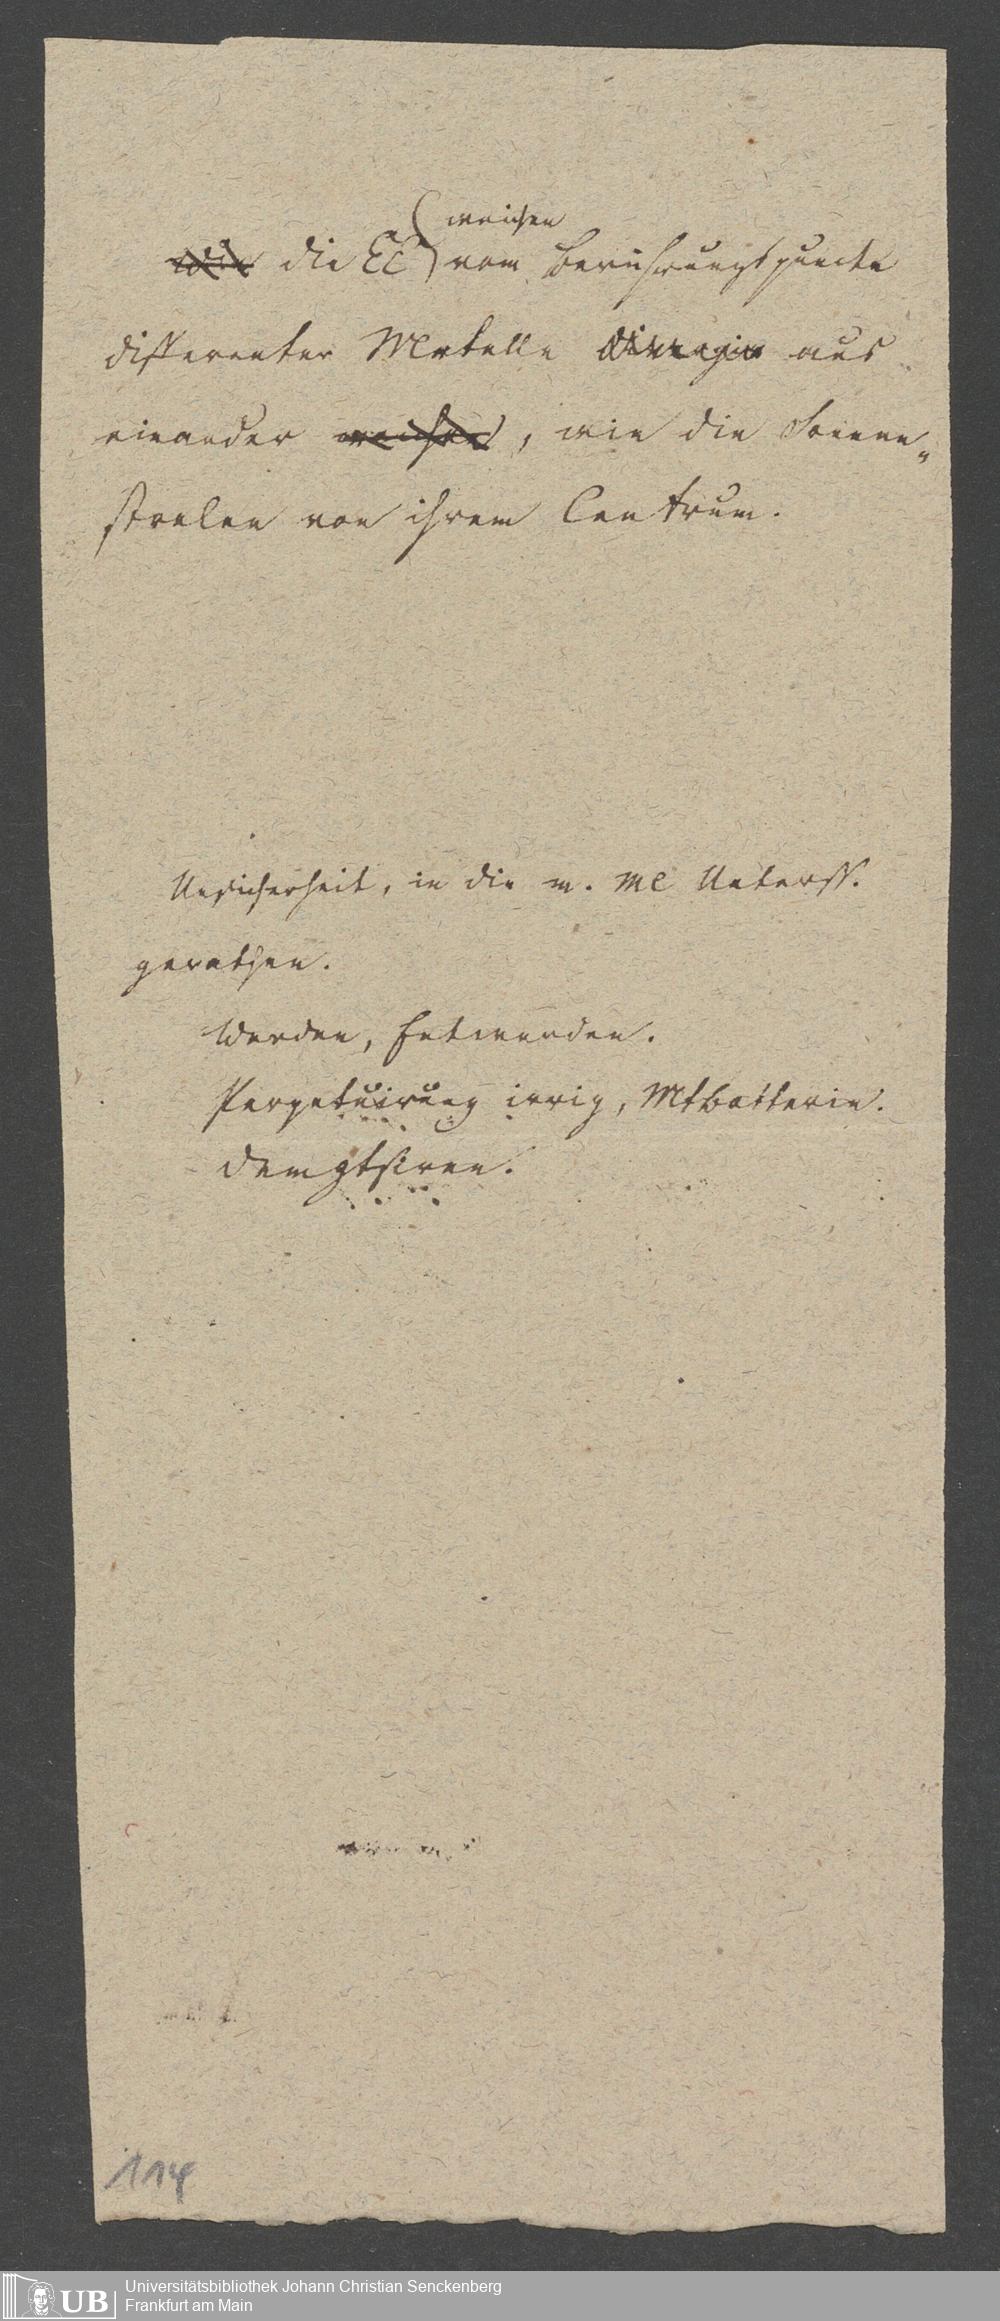 weichen
wie die EE vom Berührungspuncte
differenter Metalle aus
einander weichen, wie die Sonnen„
stralen von ihrem Centrum.
Unsicherheit, in die m. me Unterss.
gerathen.
Werden, Entwerden.
Perpetuirung irrig, Mtbatterie.
114
UB Universitätsbibliothek Johann Christian Senckenberg
Frankfurt am Main